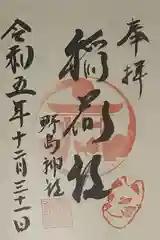 奉拝
稲荷社
野島神社
令和五年十二月三十一日